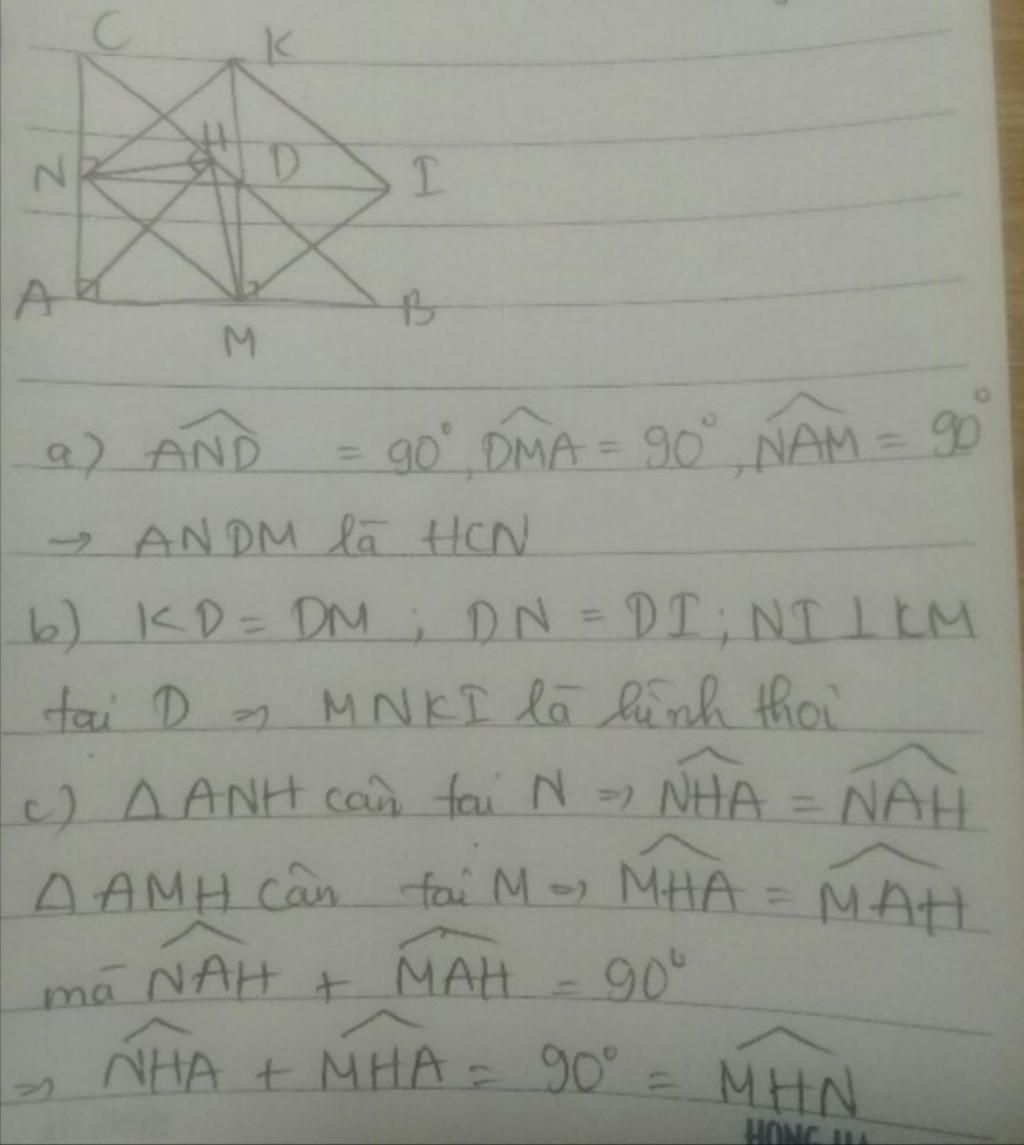 C K
H
N D I
A B
M
a) AND̂ = 90°, DMÂ = 90°, NAM̂ = 90°
→ ANDM là HCN
b) KD = DM ; DN = DI ; NI ⊥ KM
tại D => MNKI là hình thoi
c) Δ ANH cân tại N => NHÂ = NAĤ
Δ AMH cân tại M => MHÂ = MAĤ
mà NAĤ + MAĤ = 90°
=> NHÂ + MHÂ = 90° = MHN̂